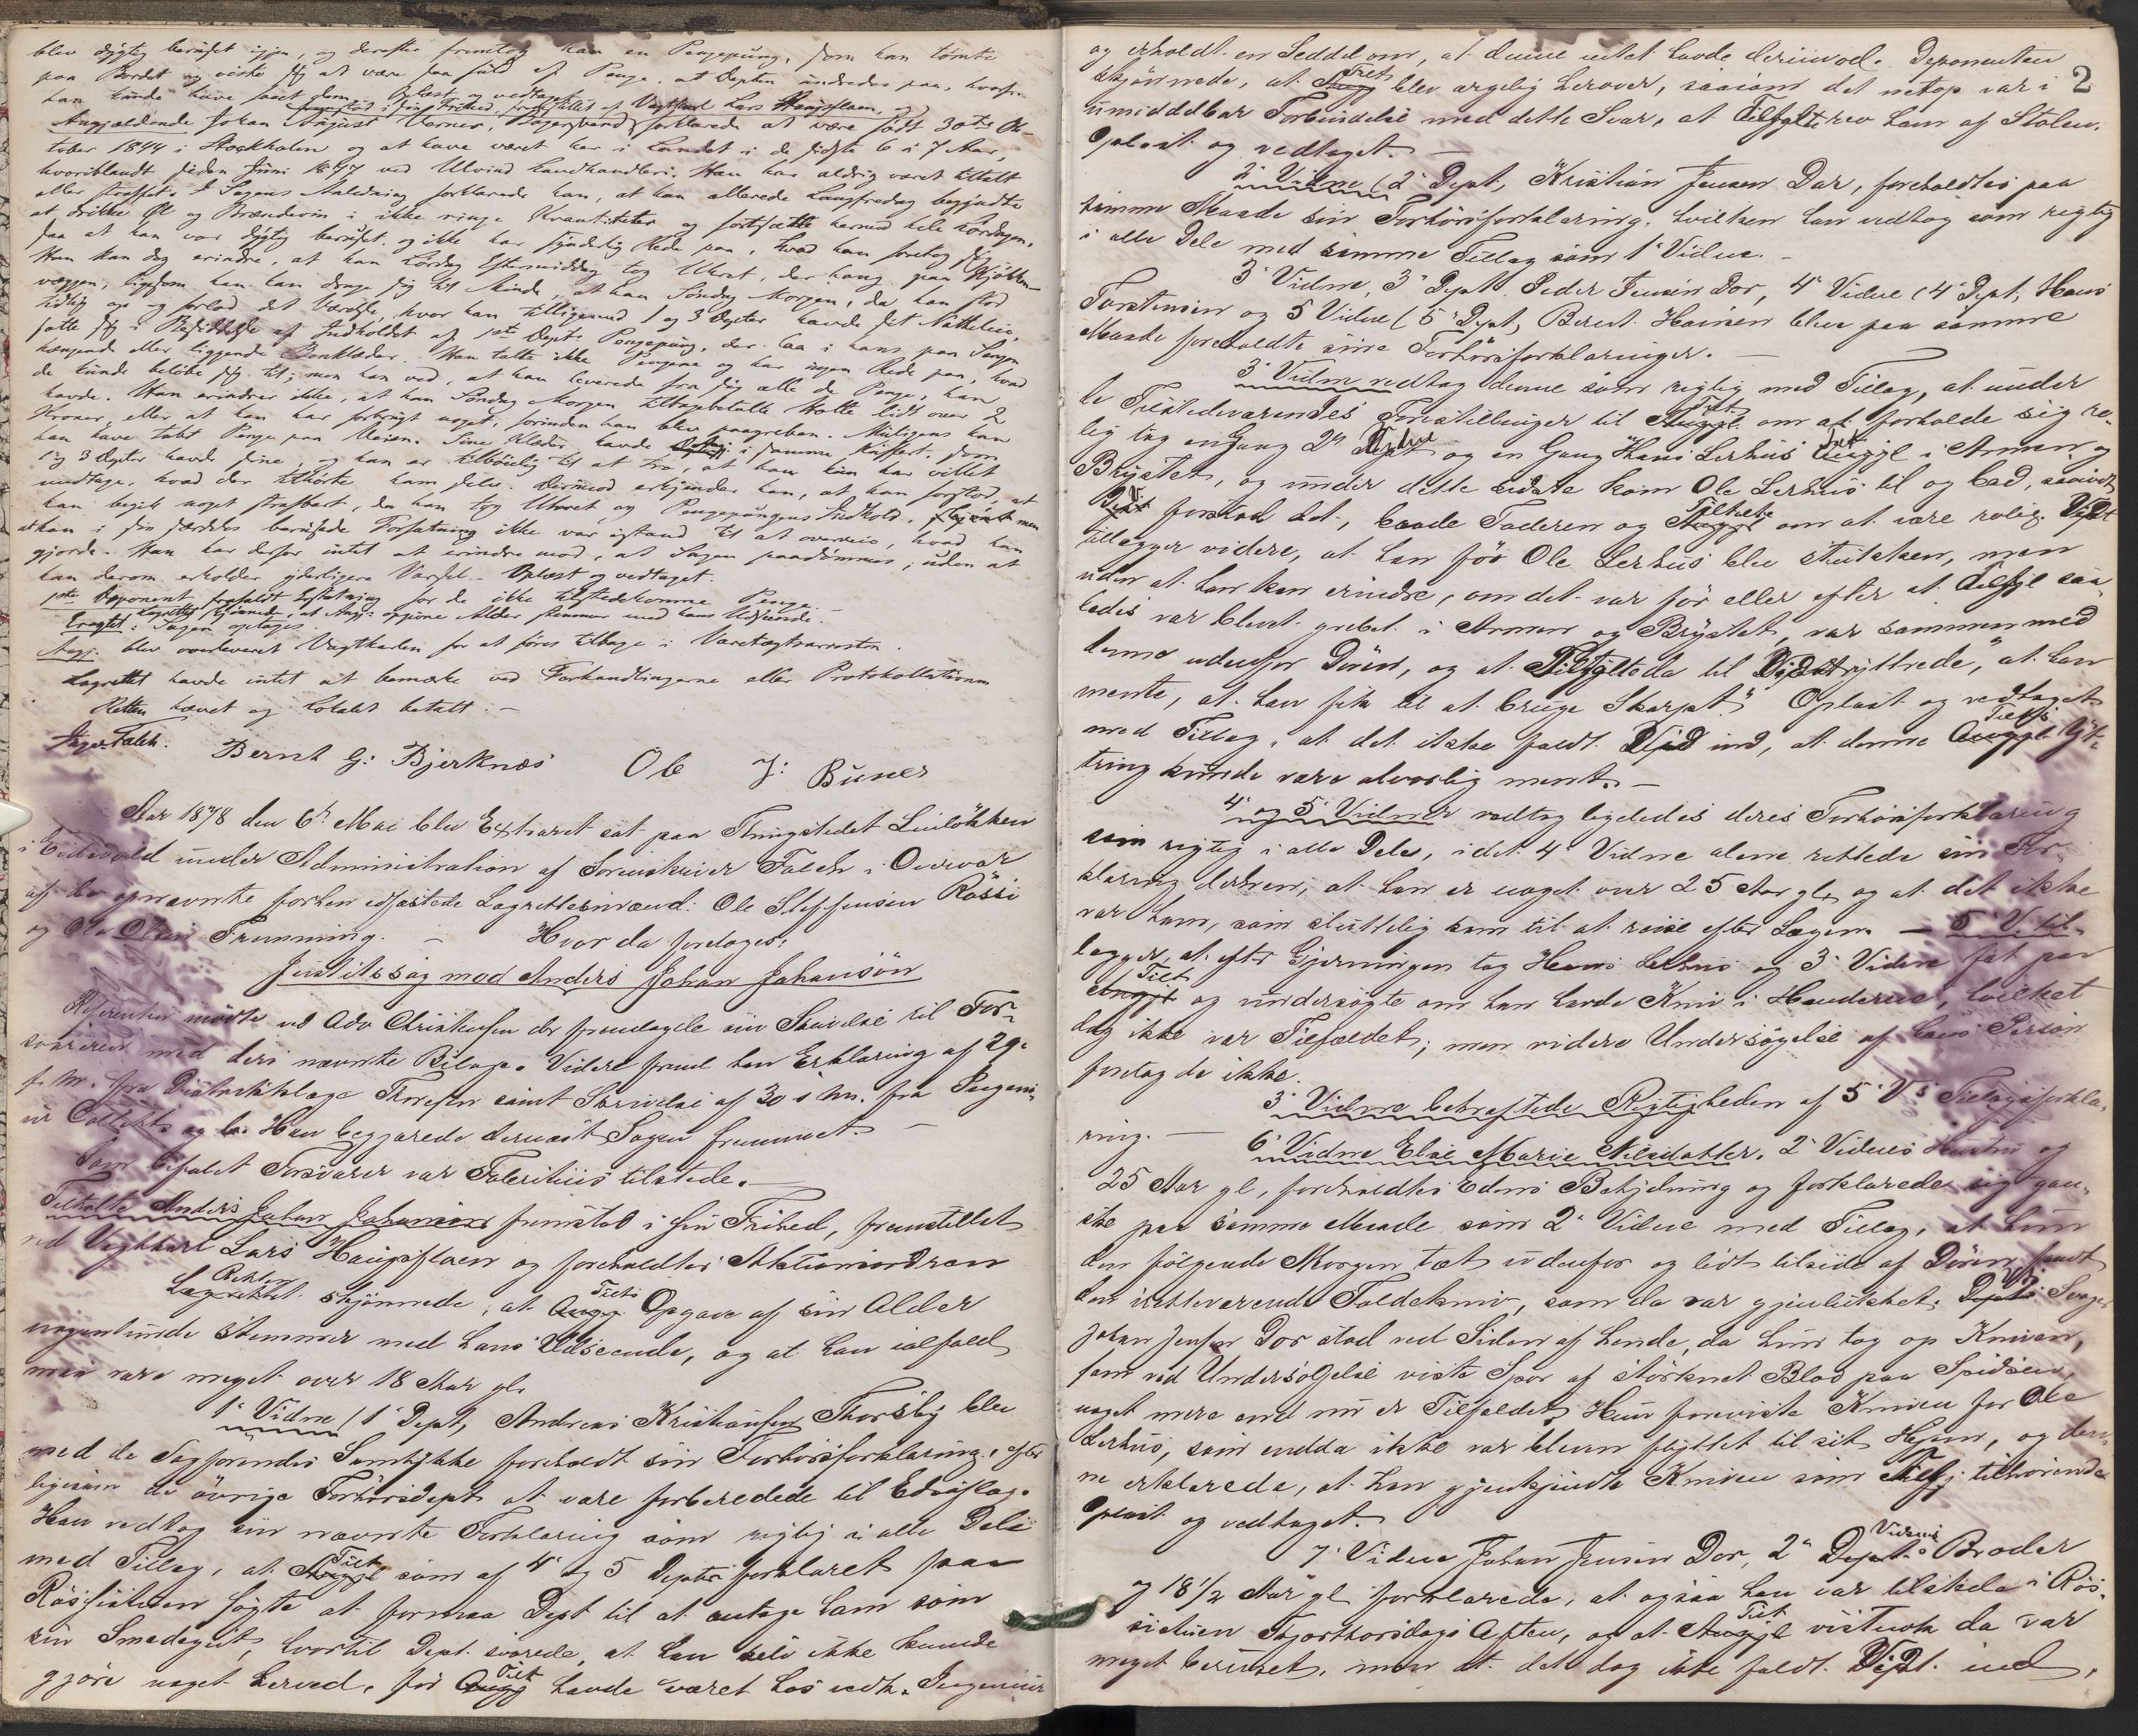 blev dygtig beruset igjen, og derefter fremtog han en Pengepung, som han tømte
paa Bordet og viste sig at være saa fuld af Penge, at Depten undredes paa, hvorfra
han kunde have faaet dem. Oplæst og vedtaget.
fremstod i sin Frihed, fremstillet af Vagtkarl Lars Haugsflaen, og
Angjældende Johan August Verner, Bagersvend, forklarede at være født 30te Ok-
tober 1844 i Stockholm og at have været her i Landet i de sidste 6 à 7 Aar,
hvoriblandt siden Juni 1877 ved Ulvind Landhandleri. Han har aldrig været tiltalt
eller straffet. I Sagens Anledning forklarede han, at han allerede Langfredag begyndte
at drikke Øl og Brændevin i ikke ringe Kvantiteter og fortsatte hermed hele Lørdagen,
saa at han var dygtig beruset og ikke har synderlig Rede paa, hvad han foretog sig.
Han kan dog erindre, at han Lørdag Eftermiddag tog Uhret, der hang paa Kjøkken-
væggen, ligesom han kan drage sig til Minde, at han Søndag Morgen, da han stod
tidlig op og forlod det Værelse, hvor han tilligemed 1 og 3 Depter havde sit Natteleie,
satte sig i Besiddelse af Indholdet af 1ste Depts Pengepung, der laa i hans paa Sengen
hængende eller liggende Benklæder. Han talte ikke Pengene og har ingen Rede paa, hvad
de kunde beløbe sig til; men han ved, at han leverede fra sig alle de Penge, han
havde. Han erindrer ikke, at han Søndag Morgen tilbagebetalte Holte lidt over 2
Kroner, eller at han har forbrugt noget, forinden han blev paagreben. Muligens kan
han have tabt Penge paa Veien. Sine Klæder havde Angj. i samme Koffert, som
1 og 3 Depter havde sine, og han er tilbøielig til at tro, at han kun har villet
medtage, hvad der tilhørte ham selv. Derimod erkjender han, at han forstod, at
han begik noget strafbart, da han tog Uhret og Pengepungens Indhold, men
at han i sin særdeles berusede Forfatning ikke var istand til at overveie, hvad han
gjorde. Han har derfor intet at erindre mod, at Sagen paadømmes, uden at
han derom erholder yderligere Varsel. – Oplæst og vedtaget.
1ste Deponent frafaldt Erstatning for de ikke tilstedekomne Penge. –
Lagrettet skjønnede, at Angj. opgivne Alder stemmer med hans Udseende.
Eragtet: Sagen optages.
Angj. blev overleveret Vagtkarlen for at føres tilbage i Varetægtsarresten.
Lagrettet havde intet at bemærke ved Forhandlingerne eller Protokollationen
Retten hævet og Lokalet betalt. –
Jager Falch. Bernt G: Bjerknæs Ole J: Buner
Aar 1878 den 6te Mai blev Extraret sat paa Thingstedet Linløkken
i Eidsvold under Administration af Sorenskriver Falch i Overvær
af de opnævnte forhen edfæstede Lagrettesmænd: Ole Steffensen Røssi
og Ole Olsen Trønning. – Hvor da foretoges:
Justitssag mod Anders Johan Johansön
Referenten mødte ved Adv Christensen der fremlagde sin Skrivelse til For-
svareren med deri nævnte Bilage. Videre fremla han Erklæring af 29.
f. M. fra Distriktslæge Thoresen samt Skrivelse af 30 s. M. fra Ingeni-
ør Collett og la. Han begjærede dernæst Sagen fremmet. –
Som befalet Forsvarer var Falsenius tilstede. –
Tiltalte Anders Johan Johansøn fremstod i sin Frihed, fremstillet
ved Vagtkarl Lars Haugsflaen og foreholdtes Aktionsordren
Retten
Lagrettet skjønnede, at Angj Tilts Opgave af sin Alder
nogenlunde stemmer med hans Udseende, og at han ialfald
maa være meget over 18 Aar gl.
1. Vidne (1. Dept, Andreas Kristiansen Thorsby blev
med de Sagførendes Samtykke foreholdt sin Forhørsforklaring, efter
ligesom de øvrige Forhørsdepts at være forberedede til Edsaflæg.
Han vedtog sin nævnte Forklaring som rigtig i alle Dele
med Tillæg, at Angjl Tilt som af 4. og 5 Depter forklaret paa
Røsistuen søgte at formaa Dept til at antage ham som
sin Smedegut, hvortil Dept. svarede, at han selv ikke kunde
gjøre noget herved, før Angj Tilt havde været hos vedk. Ingeniør
2
og erholdt en Seddel om, at denne intet havde derimod. Deponenten
skjønnede, at Angj Tilt blev ærgelig herover, saasom det netop var i
umiddelbar Forbindelse med dette Svar, at Tiltalte rev ham af Stolen.
Oplæst og vedtaget. –
2. Vidne (2. Dept, Kristian Jensen Dar, foreholdtes paa
samme Maade sin Forhørsforklaring, hvilken han vedtog som rigtig
i alle Dele med samme Tillæg som 1. Vidne. –
3. Vidne, 3. Dept. Peder Jensen Dor, 4. Vidne (4. Dept, Hans
Torstensen og 5 Vidne (5. Dept, Bernt Hansen blev paa samme
Maade foreholdte sine Forhørsforklaringer. –
3. Vidne vedtog denne som rigtig med Tillæg, at under
de Tilstedeværendes Forestillinger til Angjl. Tilt. om at forholde sig ro-
lig tog en Gang 2det Vidne og en Gang Hans Lerhus Angjl Tilt i Armen og
Brystet, og under dette sidste kom Ole Lerhus til og bad, saavidt
Dept V. forstod det, baade Faderen og Angjl Tiltalte om at være rolig. Vidt
tillægger videre, at han før Ole Lerhus blev stukken, men
uden at han kan erindre, om det var før eller efter at Tiltl saa-
ledes var blevet grebet i Armen og Brystet, var sammen med
denne udenfor Døren, og at Tiltalte da til Vidnet yttrede, "at han
mente, at han fik til at bruge Skarpt." Oplæst og vedtaget
med Tillæg, at det ikke faldt Vid ind, at denne Angjl Tilts Yt-
tring kunde være alvorlig ment. –
4. og 5. Vidner vedtog ligeledes deres Forhørsforklaring
som rigtig i alle Dele, idet 4. Vidne alene rettede sin For-
klaring derhen, at han er noget over 25 Aar gl, og at det ikke
var ham, som sluttelig kom til at reise efter Lægen. – 5. V. til-
lægger, at efter Gjerningen tog Hans Lerhus og 3. Vidne fat paa
Angjl Tilt og undersøgte om han havde Kniv i Hænderne, hvilket
dog ikke var Tilfældet; men videre Undersøgelse af hans Person
foretog de ikke.
3. Vidne bekræftede Rigtigheden af 5. Vs Tillægsforkla-
ring. –
6. Vidne Else Marie Nilsdatter, 2. Vidnes Hustru og
25 Aar gl, foreholdtes Edens Betydning og forklarede sig gan-
ske paa samme Maade som 2. Vidne med Tillæg, at hun
den følgende Morgen tæt udenfor og lidt tilside af Døren fandt
den iretteværende Foldekniv, som da var gjenlukket. Depts Vs Svoger
Johan Jensen Dor stod ved Siden af hende, da hun tog op Kniven,
som ved Undersøgelse viste Spor af størknet Blod paa Spidsen,
noget mere end nu er Tilfældet. Hun foreviste Kniven for Ole
Lerhus, som endda ikke var bleven flyttet til sit Hjem, og den-
ne erklærede, at han gjenkjendte Kniven som Tilt tilhørende.
Oplæst og vedtaget.
7. Vidne Johan Jensen Dor, 2. Depts Vidnes Broder
og 18 1/2 Aar gl forklarede, at ogsaa han var tilstede i Røs-
sistuen Skjærthorsdags Aften, og at Angjl Tilt vistnok da var
meget beruset, men at det dog ikke faldt Vidt. ind,